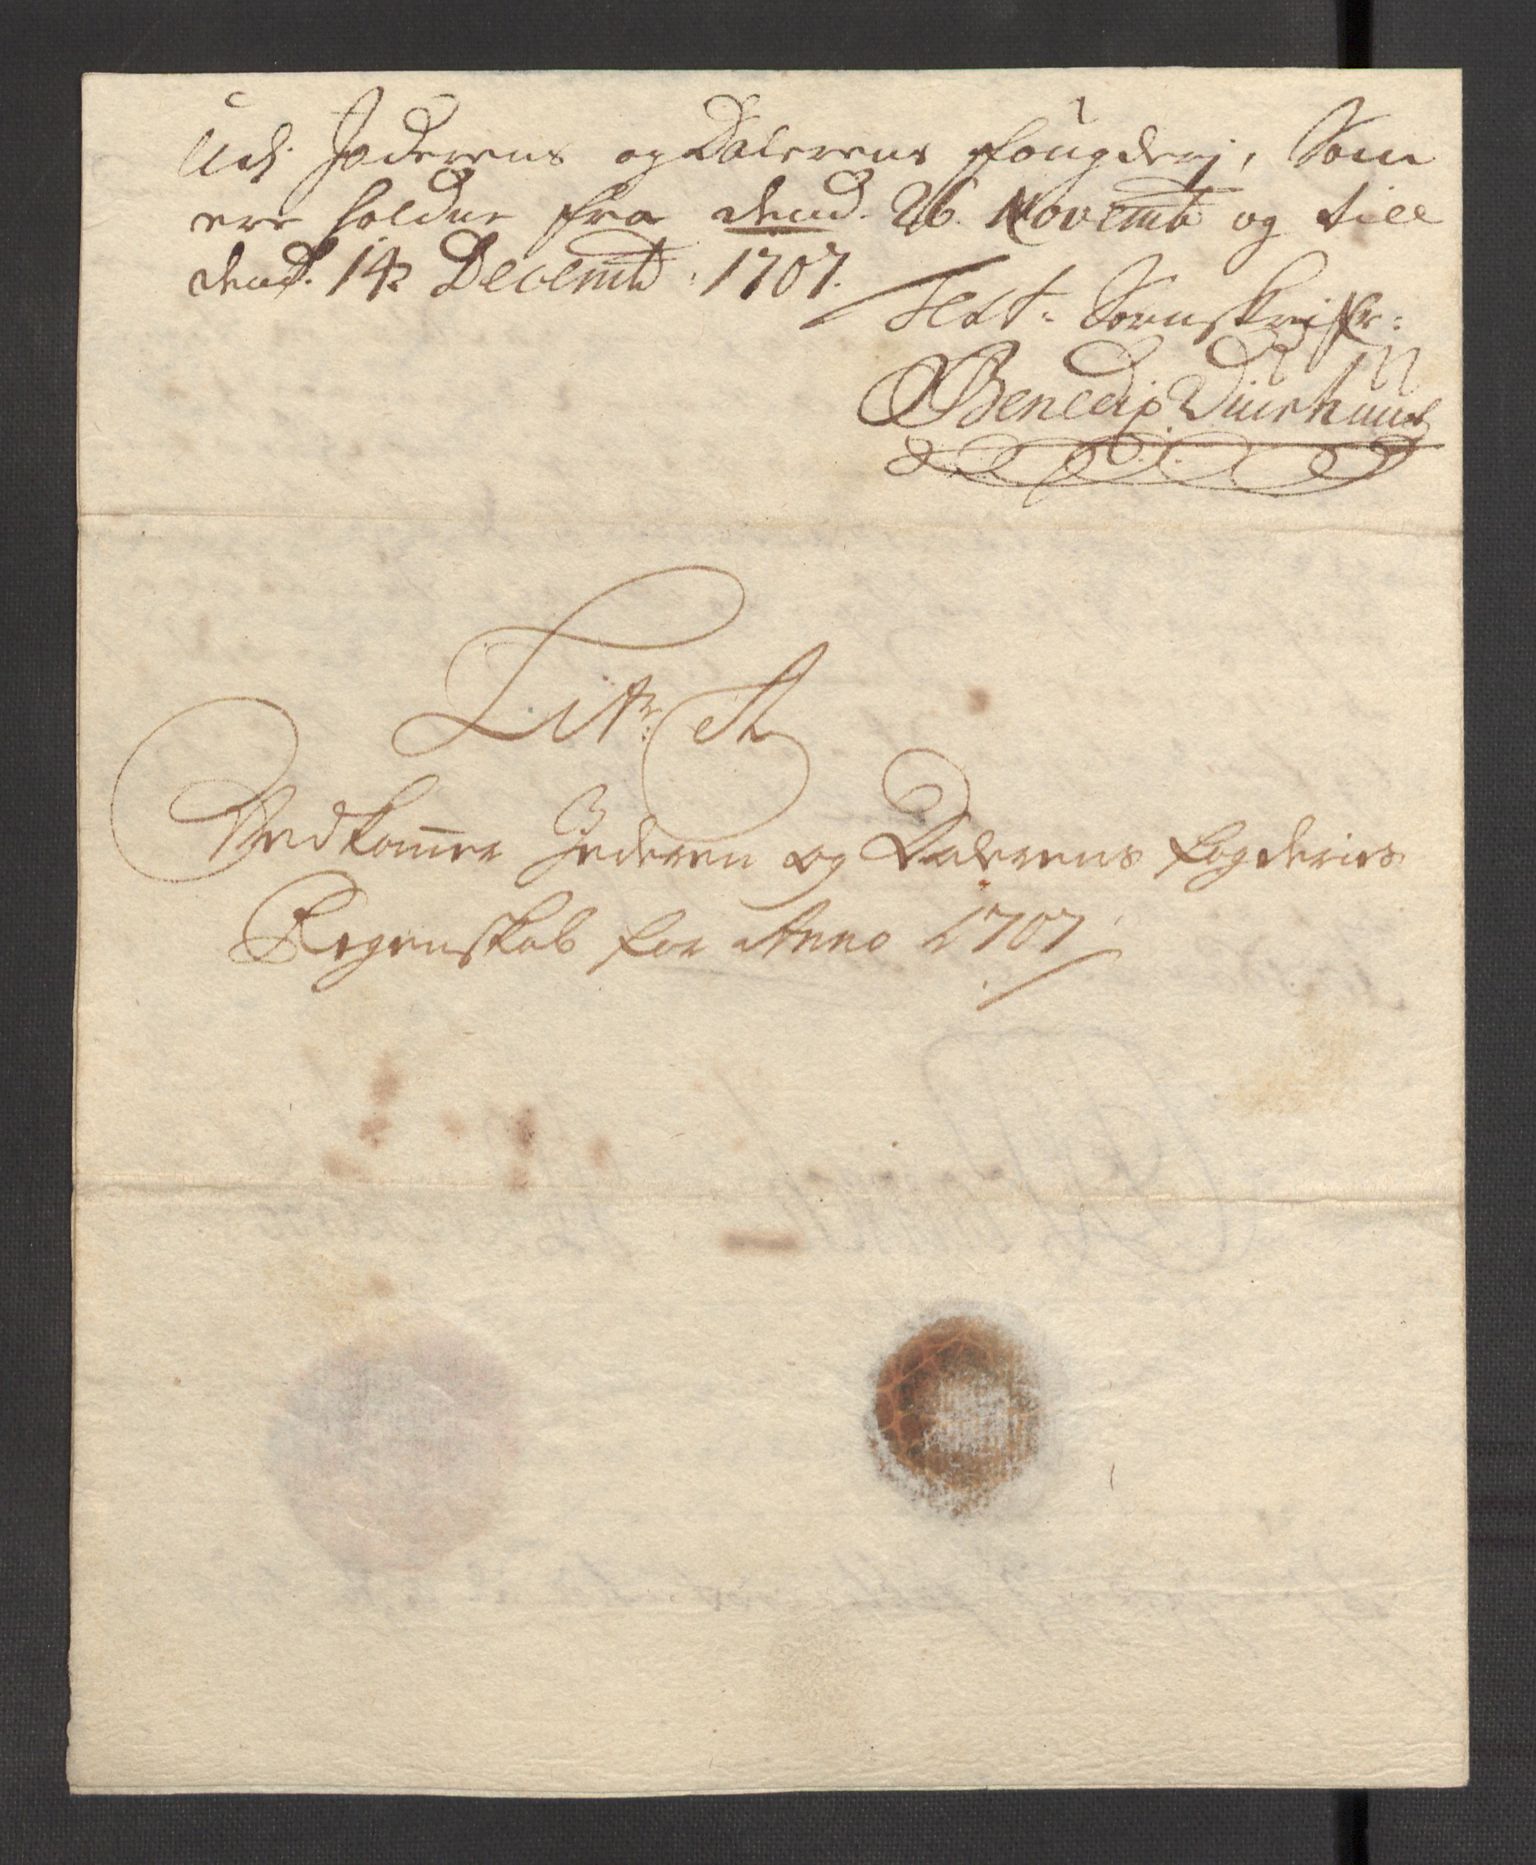 Udj Jæderens og Dalerens fougderj, Som
ere holdne fra dend. 26. Novemb og till
dend. 14 Decemb. 1707.
Test. Sornskrifr:
Benedix
Litr. A
Vedkommer Jederen og Dalerens fogderies
Regenskab for Anno 1707